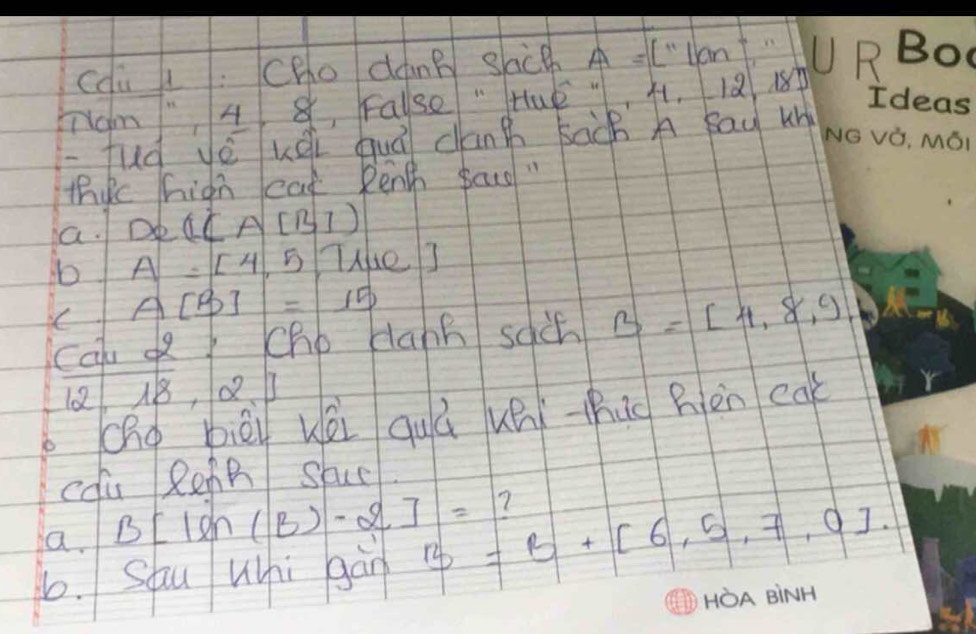 Câu 1 : Cho danh sách A = ["Lan",
"Nam", 4, 8, False "Huế", 4, 12, 18]
- trả về kết quả danh sách A sau khi
thực hiện các lệnh sau"
a. Del(A[3])
b. A = [4, 5, True]
c. A[3] = 15
Câu 2 : Cho danh sách B = [4, 8, 9,
12, 18, 2.]
Cho biết kết quả khi thực hiện các
câu lệnh sau.
a. B[len(B)-2] = ?
b. Sau khi gán B = B + [6, 5, 7, 9].
UR Boo
Ideas
NG VỞ, MỖI
HÒA BÌNH